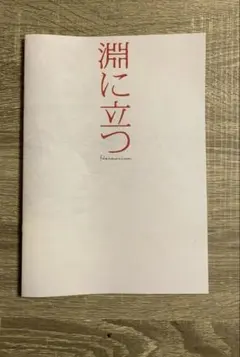 淵に立つ
Harmonium